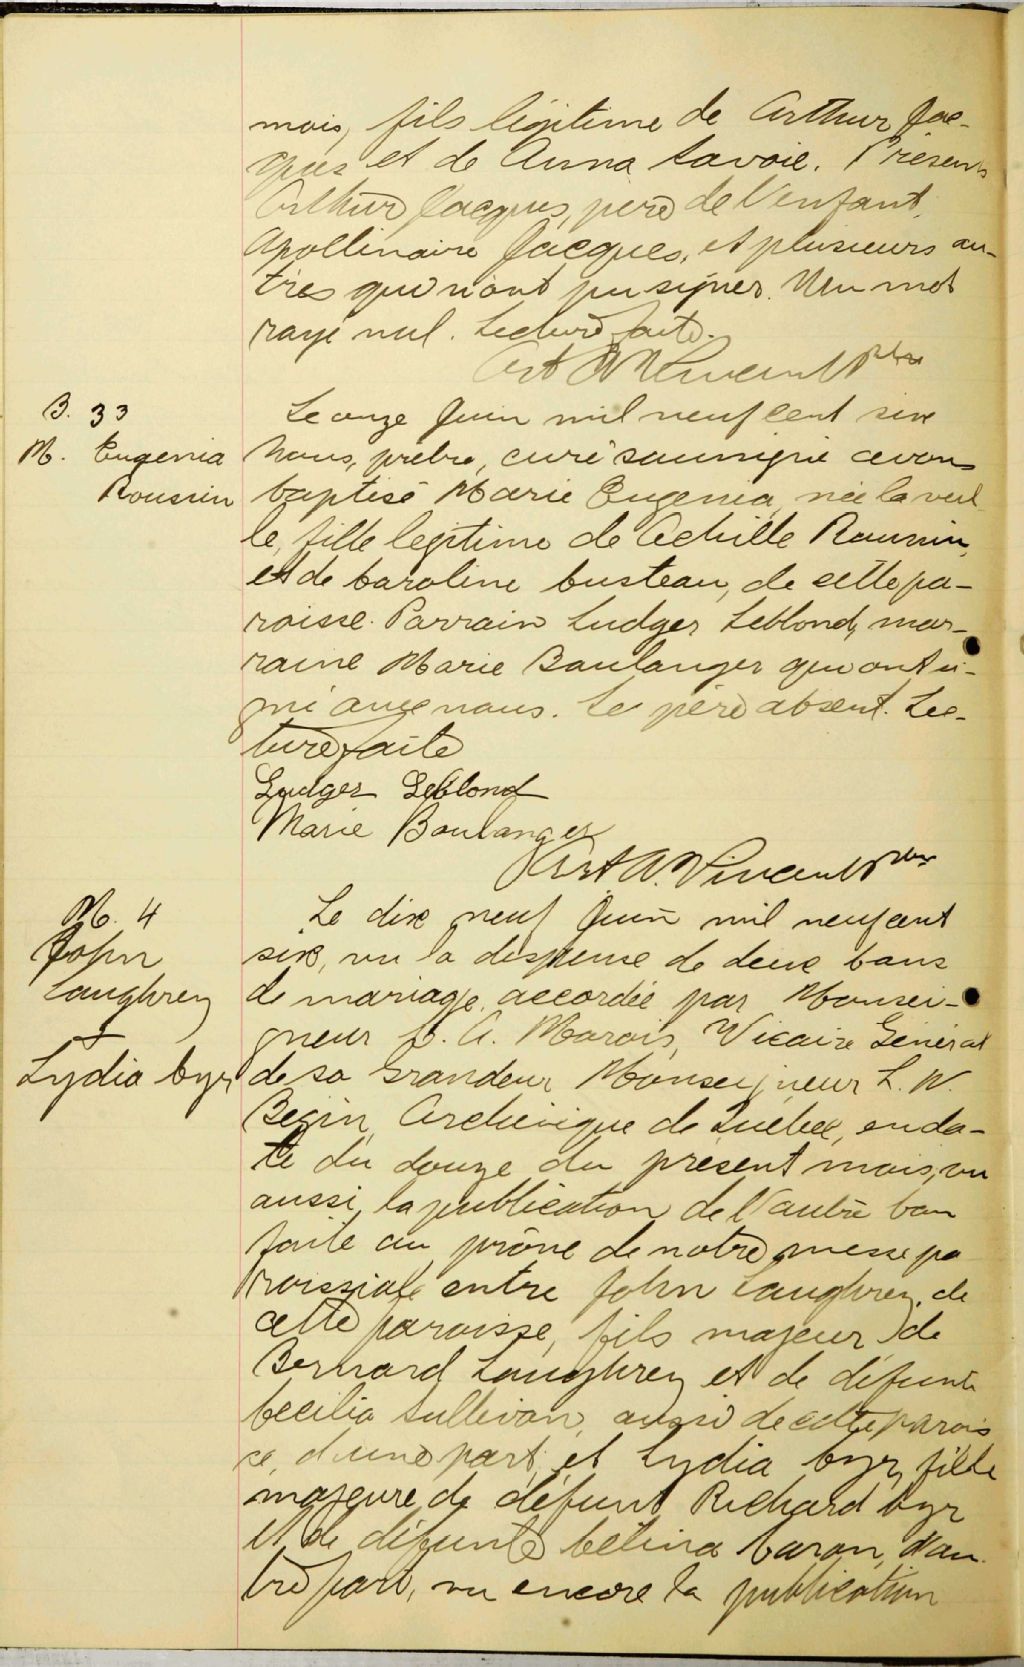 mois, fils légitime de Arthur Jac-
ques et de Anna Savoie. Présents
Arthur Jacques, père de l'enfant,
Apollinaire Jacques, et plusieurs au-
tres qui n'ont pu signer. Un mot
rayé nul. Lecture faite.
Art A Vincent Ptre
B. 33
M. Eugenia
Roussin
Le onze Juin mil neuf cent six
Nous, prêtre, curé soussigné avons
baptisé Marie Eugenia, née la veil-
le, fille légitime de Achille Roussin,
et de Caroline Custeau, de cette pa-
roisse. Parrain Ludger Leblond, mar-
raine Marie Boulanger qui ont si-
gné avec nous. Le père absent. Lec-
ture faite
Ludger Leblond
Marie Boulanger
Art A. Vincent Ptre
M. 4
John
Laughrey
&
Lydia Cyr
Le dix neuf Juin mil neuf cent
six, vu la dispense de deux bans
de mariage, accordée par Monsei-
gneur C. A. Marois, Vicaire Général
de sa Grandeur Monseigneur L. N.
Begin, Archevêque de Québec, en da-
te du douze du présent mois, vu
aussi la publication de l'autre ban
faite au prône de notre messe pa
roissiale entre John Laughrey, de
cette paroisse, fils majeur de
Bernard Laughrey et de défunte
Cecilia Sullivan, aussi de cette parois
se, d'une part, et Lydia Cyr, fille
majeure de défunt Richard Cyr
et de défunte Célina Caron, d'au-
tre part, vu encore la publication